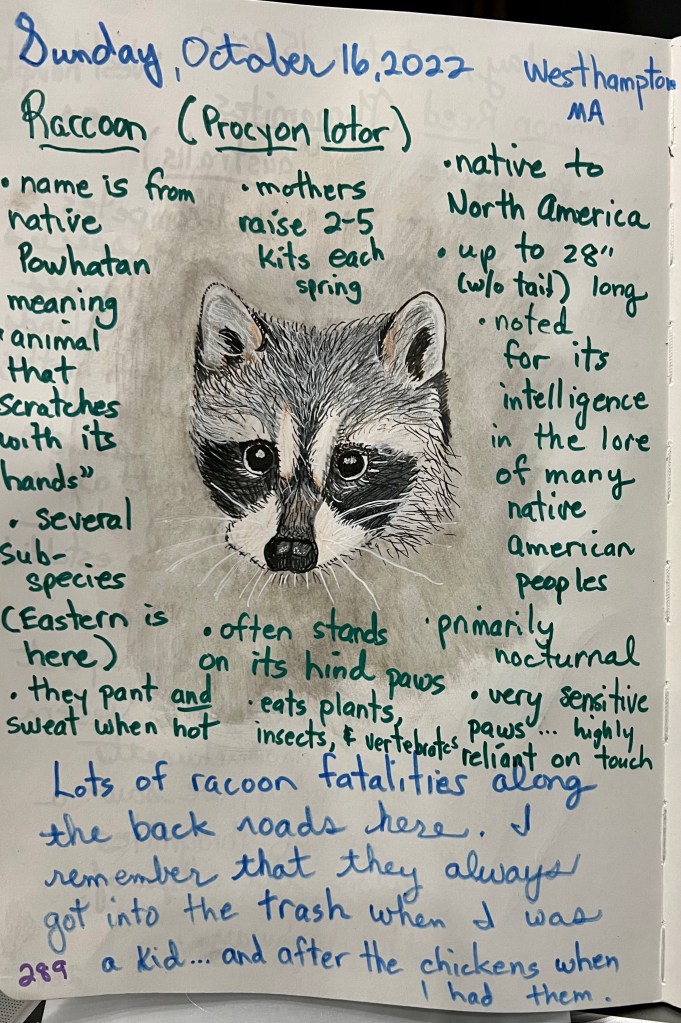 Sunday, October 16, 2022
Westhampton
MA
Raccoon (Procyon lotor)
• name is from
native
Powhatan
meaning
"animal
that
scratches
with its
hands"
• several
sub-
species
(Eastern is
here)
• they pant and
sweat when hot
• mothers
raise 2-5
kits each
spring
• native to
North America
• up to 28"
(w/o tail) long
• noted
for its
intelligence
in the lore
of many
native
american
peoples
• often stands
on its hind paws
• primarily
nocturnal
• eats plants,
insects, & vertebrates
• very sensitive
paws... highly
reliant on touch
Lots of racoon fatalities along
the back roads here. I
remember that they always
got into the trash when I was
a kid... and after the chickens when
I had them.
289